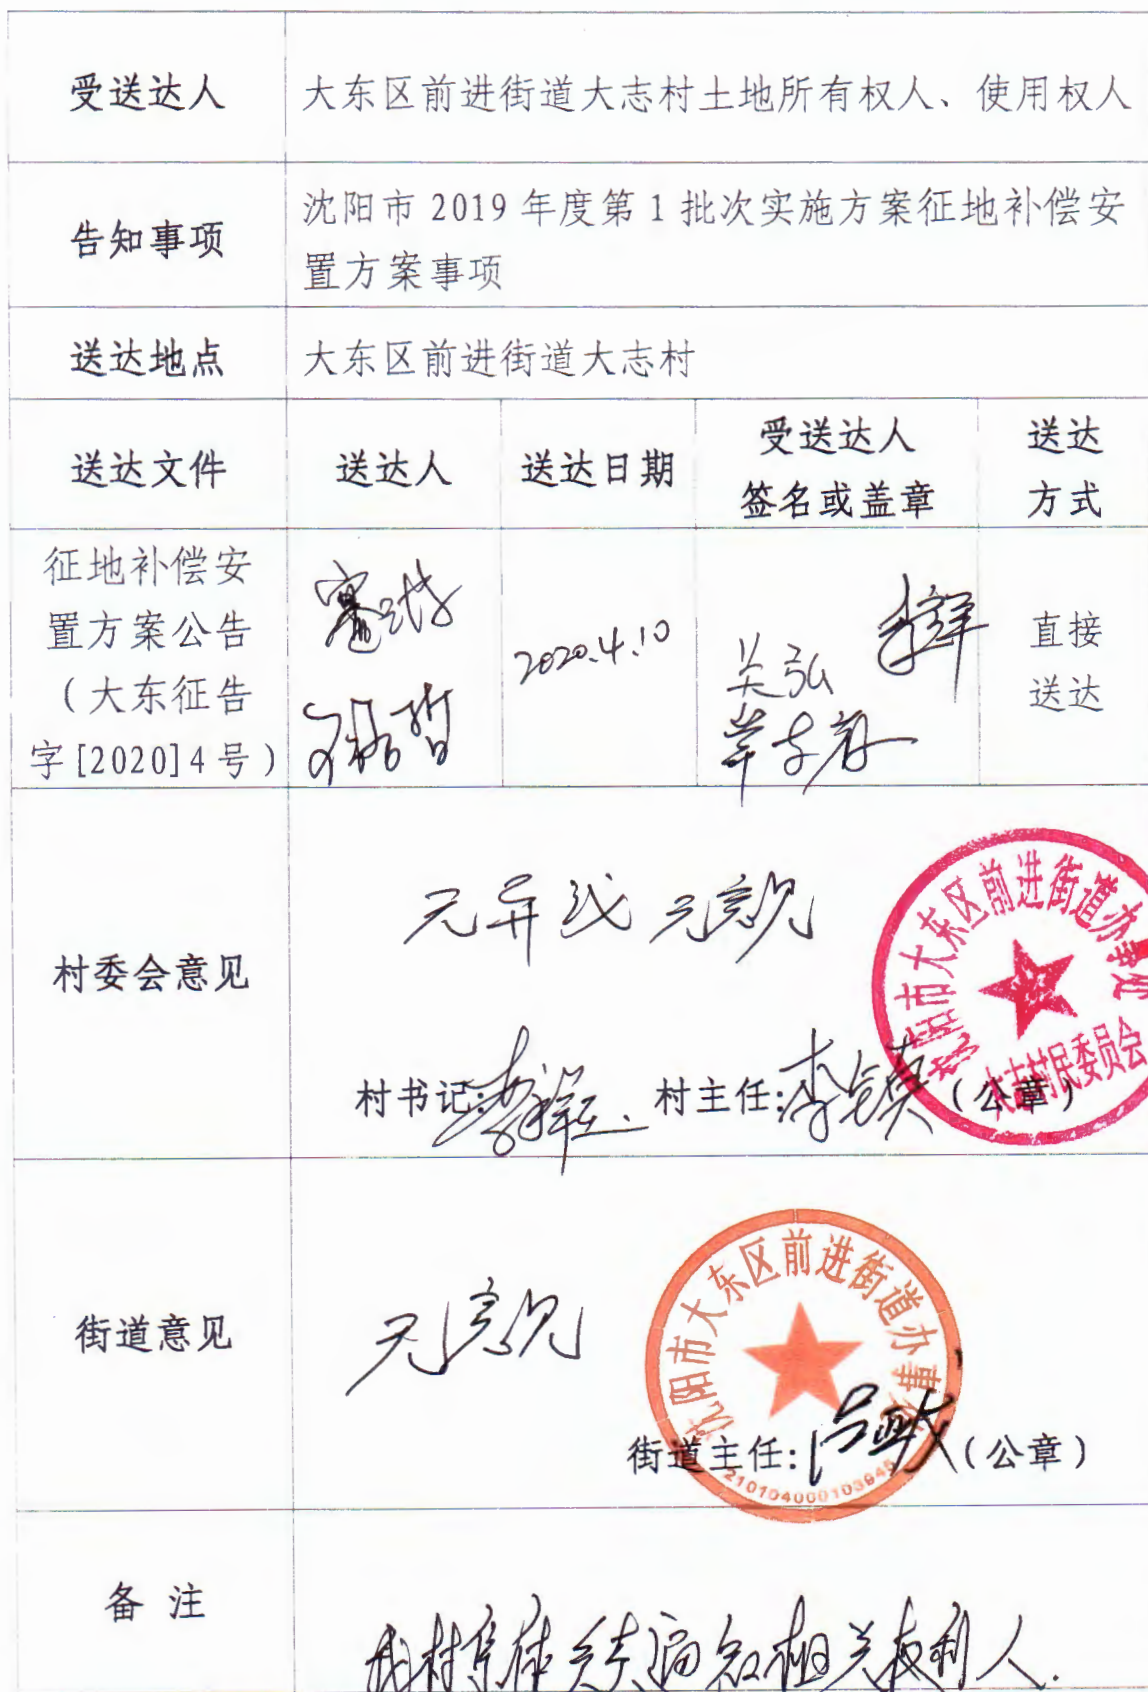 受送达人
大东区前进街道大志村土地所有权人、使用权人
告知事项
沈阳市2019年度第1批次实施方案征地补偿安
置方案事项
送达地点
大东区前进街道大志村
送达文件
送达人
送达日期
受送达人
签名或盖章
送达
方式
征地补偿安
置方案公告
(大东征告
字[2020]4号)
2020.4.10
直接
送达
村委会意见
无异议 无意见
沈阳市大东区前进街道办事处
大志村民委员会
村书记:
村主任:
(公章)
街道意见
无意见
沈阳市大东区前进街道办事处
210104000103945
街道主任:
(公章)
备 注
我村集体 相关权利人.